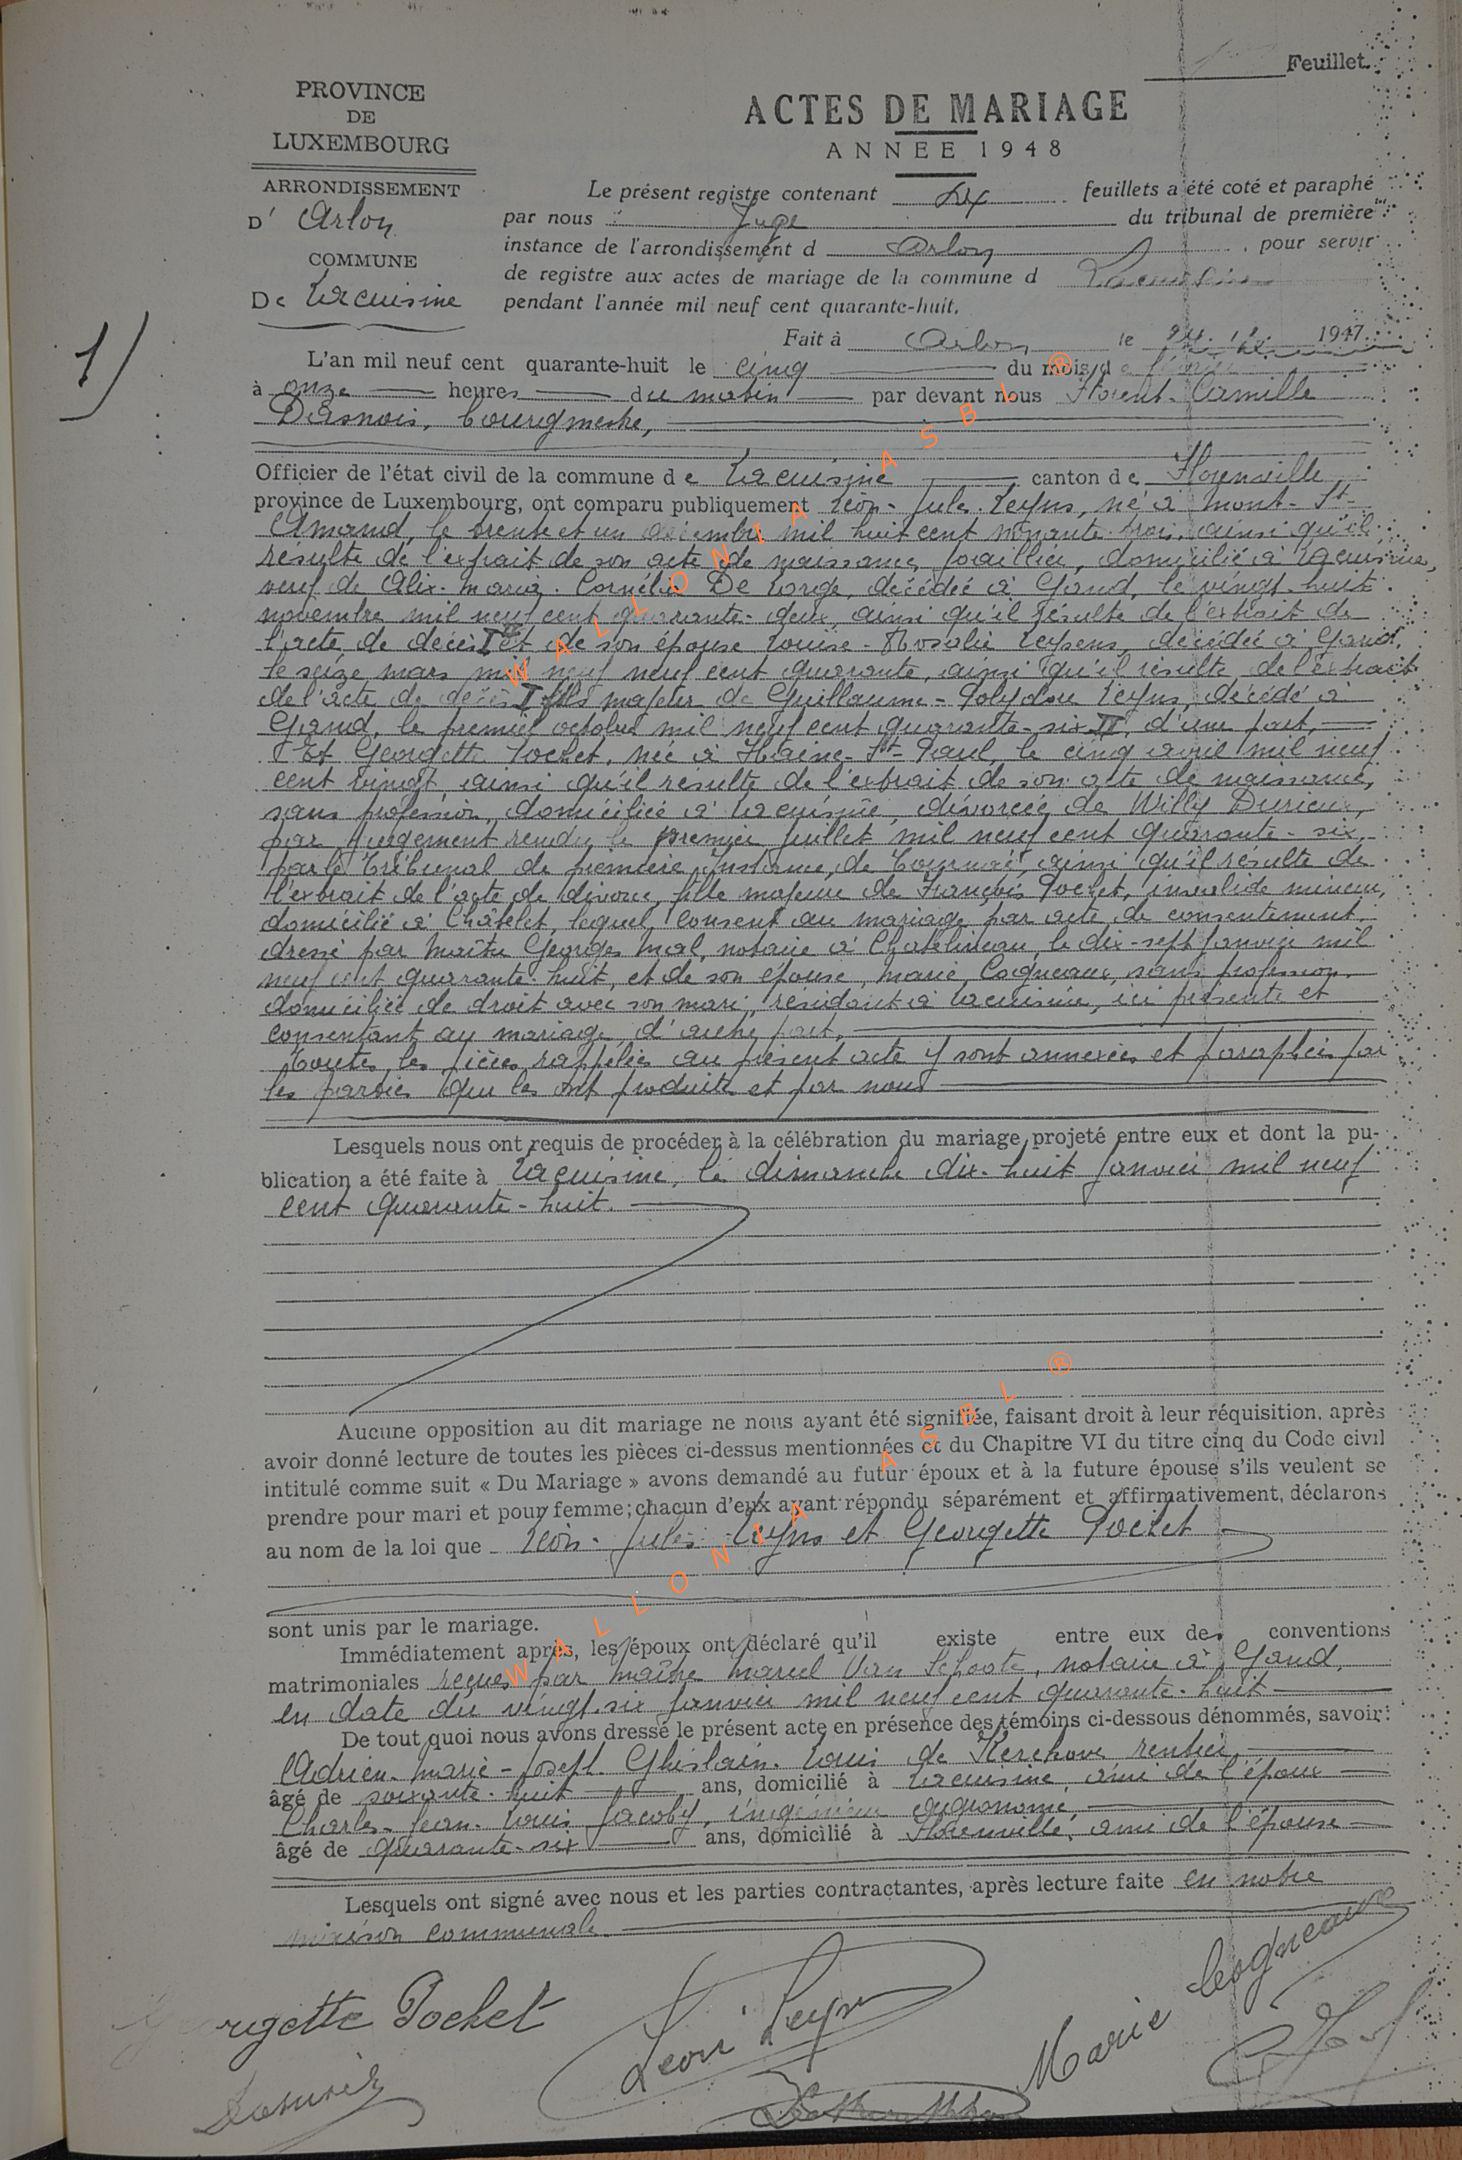 Feuillet
PROVINCE
DE
LUXEMBOURG
ACTES DE MARIAGE
ANNEE 1948
ARRONDISSEMENT
D' Arlon
COMMUNE
De Lacuisine
Le présent registre contenant dix feuillets a été coté et paraphé
par nous Juge du tribunal de première
instance de l'arrondissement d Arlon pour servir
de registre aux actes de mariage de la commune d Lacuisine
pendant l'année mil neuf cent quarante-huit.
Fait à Arlon le 1947
1)
L'an mil neuf cent quarante-huit le cinq du mois de
à onze heures du matin par devant nous Florent-Camille
bourgmestre,
Officier de l'état civil de la commune de Lacuisine canton de Florenville
province de Luxembourg, ont comparu publiquement Léon-Jules Leyns, né à Mont-St-
Amand, le trente et un décembre mil huit cent nonante-trois, ainsi qu'il
résulte de l'extrait de son acte de naissance, joaillier, domicilié à Lacuisine,
veuf de Alix-Maria-Cornélie De Lorge, décédée à Gand, le vingt-huit
novembre mil neuf cent quarante-deux, ainsi qu'il résulte de l'extrait de
l'acte de décès et de son épouse Louise-Rosalie Leysens, décédée à Gand,
le seize mars mil neuf neuf cent quarante, ainsi qu'il résulte de l'extrait
de l'acte de décès I fils majeur de Guillaume-Polydore Leyns, décédé à
Gand, le premier octobre mil neuf cent quarante-six II, d'une part,
Et Georgette Pochet, née à Haine-St-Paul, le cinq avril mil neuf
cent vingt, ainsi qu'il résulte de l'extrait de son acte de naissance,
sans profession, domiciliée à Lacuisine, divorcée de Willy Durieux,
par jugement rendu le premier juillet mil neuf cent quarante-six
par le Tribunal de première Instance de Tournai, ainsi qu'il résulte de
l'extrait de l'acte de divorce, fille majeure de François Pochet, invalide mineur,
domicilié à Châtelet, lequel consent au mariage par acte de consentement
dressé par Maître Georges Mal, notaire à Châtelineau, le dix-sept janvier mil
neuf cent quarante-huit, et de son épouse, Marie Cogneaux, sans profession,
domiciliée de droit avec son mari, résidant à Lacuisine, ici présente et
consentant au mariage, d'autre part.
Toutes les pièces rappelées au présent acte y sont annexées et paraphées par
les parties qui les ont produites et par nous
Lesquels nous ont requis de procéder à la célébration du mariage projeté entre eux et dont la pu-
blication a été faite à Lacuisine, le dimanche dix-huit janvier mil neuf
cent quarante-huit.
Aucune opposition au dit mariage ne nous ayant été signifiée, faisant droit à leur réquisition, après
avoir donné lecture de toutes les pièces ci-dessus mentionnées et du Chapitre VI du titre cinq du Code civil
intitulé comme suit « Du Mariage » avons demandé au futur époux et à la future épouse s'ils veulent se
prendre pour mari et pour femme; chacun d'eux ayant répondu séparément et affirmativement, déclarons
au nom de la loi que Léon-Jules Leyns et Georgette Pochet
sont unis par le mariage.
Immédiatement après, les époux ont déclaré qu'il existe entre eux des conventions
matrimoniales reçues par Maître Marcel Van Schoote, notaire à Gand,
en date du vingt-six janvier mil neuf cent quarante-huit
De tout quoi nous avons dressé le présent acte en présence des témoins ci-dessous dénommés, savoir:
Adrien-Marie-Joseph-Ghislain-Louis de Kerchove rentier,
âgé de soixante-huit ans, domicilié à Lacuisine, ami de l'époux
Charles-Jean-Louis Jacoby, ingénieur agronome,
âgé de quarante-six ans, domicilié à Florenville, ami de l'épouse
Lesquels ont signé avec nous et les parties contractantes, après lecture faite en notre
maison communale.
Georgette Pochet
Léon Leyns
Marie Cogneaux
WALLONIA ASBL ®
WALLONIA ASBL ®